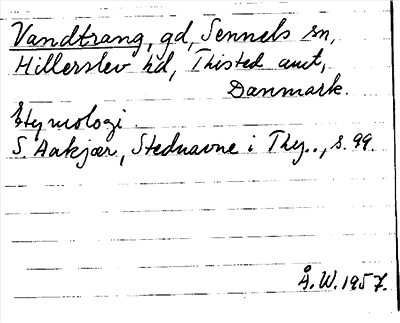 Vandtrang, gd, Sennels sn,
Hillerslev hd, Thisted amt,
Danmark.
Etymologi.
S. Aakjær, Stednavne i Thy.., s. 99.
Å. W. 1957.